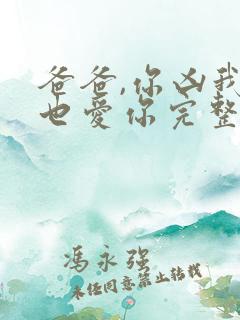 爸爸,你凶我
也爱你完整
冯永强
未经同意禁止转载